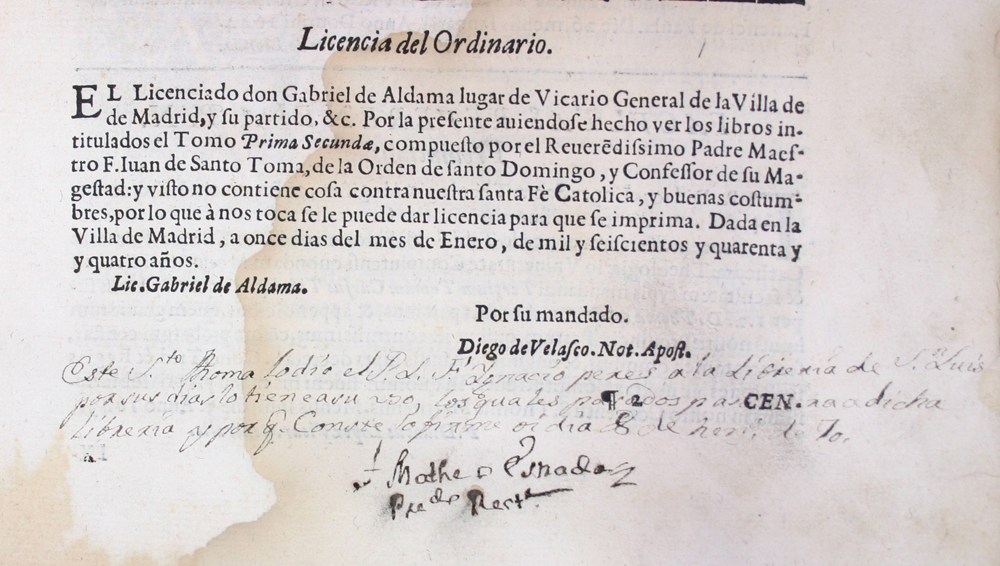 Licencia del Ordinario.
EL Licenciado don Gabriel de Aldama lugar de Vicario General de la Villa de
de Madrid, y su partido, &c. Por la presente auiendose hecho ver los libros in-
titulados el Tomo Prima Secundæ, compuesto por el Reuerẽdissimo Padre Maes-
tro F. Iuan de Santo Toma, de la Orden de santo Domingo, y Confessor de su Ma-
gestad: y visto no contiene cosa contra nuestra santa Fè Catolica, y buenas costum-
bres, por lo que à nos toca se le puede dar licencia para que se imprima. Dada en la
Villa de Madrid, a once dias del mes de Enero, de mil y seiscientos y quarenta y
y quatro años.
Lic. Gabriel de Aldama.
Por su mandado.
Diego de Velasco. Not. Apost.
Este Sto. Thoma lo dio el P. L. Fr. Ignacio peres a la Libreria de S. Luis
por sus dias lo tiene a su uso, los quales pasados ¶ 2 CEN. a dicha
libreria y por q. Conste lo firme oi dia 8 de
Fr. Matheo
Predo. Rectr.